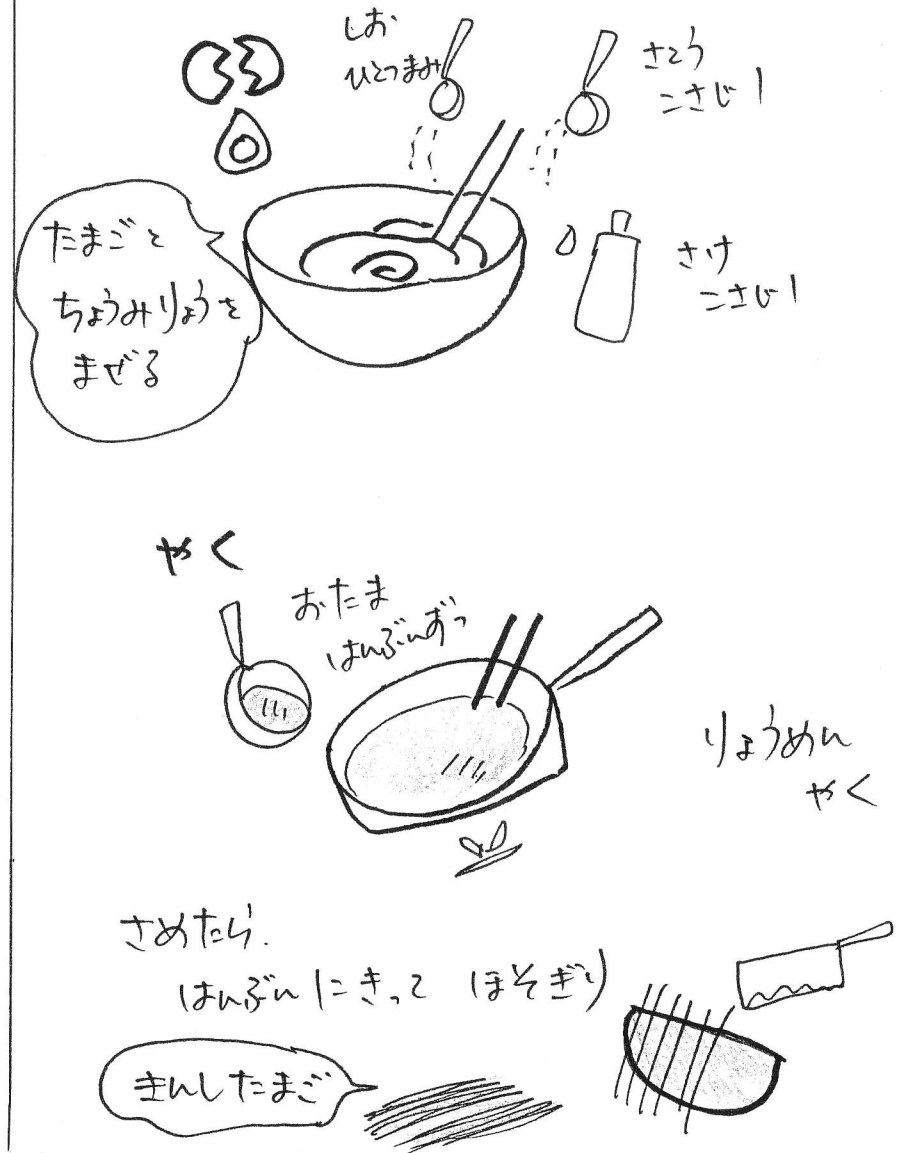 しお
ひとつまみ
さとう
こさじ1
たまごと
ちょうみりょうを
まぜる
さけ
こさじ1
やく
おたま
はんぶんずつ
りょうめん
やく
さめたら.
はんぶんにきって ほそぎり
きんしたまご